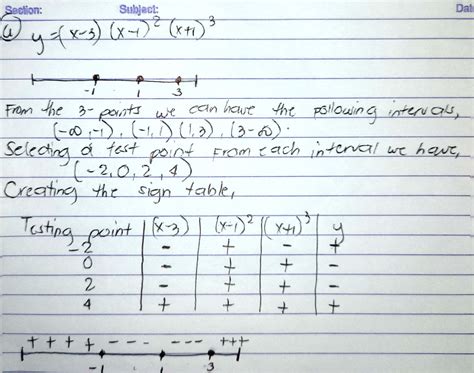 Section: Subject: Dat
a) y=(x-3) (x-1)² (x+1)³
-1 1 3
From the 3-points we can have the following intervals,
(-∞,-1), (-1,1) (1,3), (3-∞).
Selecting a test point from each interval we have,
(-2,0,2,4)
Creating the sign table,
Testing point (x-3) (x-1)² (x+1)³ y
-2 - + - +
0 - + + -
2 - + + -
4 + + + +
+ + + + - - - - - - +++
-1 1 3